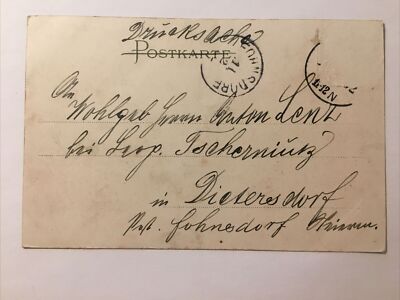 Drucksache
POSTKARTE
FOHNSDORF
An
Wohlgeb Herrn Anton Lenz
bei Leop. Tscherniutz
in Dietersdorf
Post. Fohnsdorf